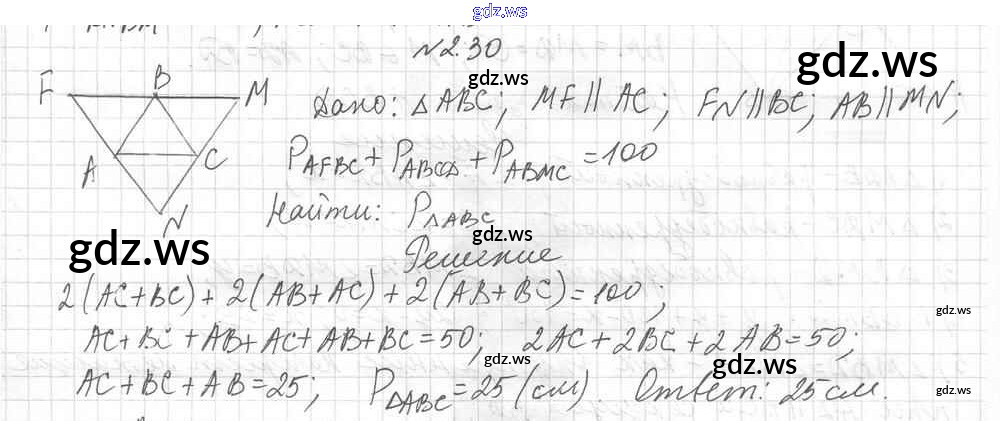 gdz.ws
N2.30
gdz.ws
gdz.ws
F B M
A C
N
Дано: △ABC; MF || AC; FN || BC; AB || MN;
P_AFBC + P_ABCD + P_ABMC = 100
Найти: P_△ABC
gdz.ws
gdz.ws
Решение
2(AC+BC) + 2(AB+AC) + 2(AB+BC) = 100;
gdz.ws
AC+BC+AB+AC+AB+BC=50; 2AC+2BC+2AB=50;
gdz.ws
gdz.ws
AC+BC+AB=25; P_△ABC=25 (см). Ответ: 25 см.
gdz.ws